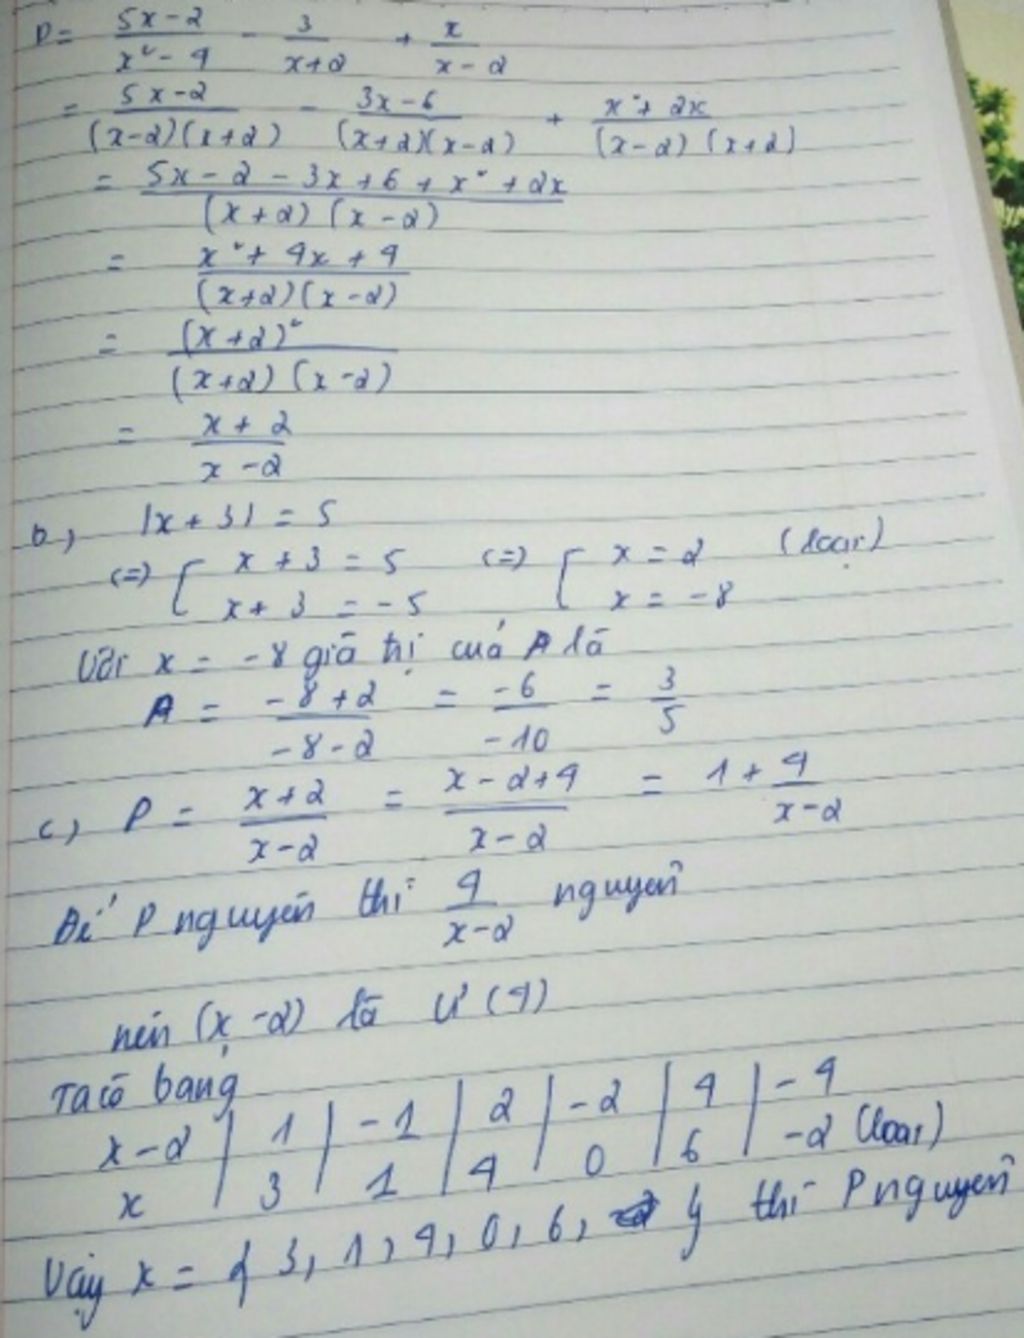 P = (5x-2)/(x²-4) - 3/(x+2) + x/(x-2)
= (5x-2)/((x-2)(x+2)) - (3x-6)/((x+2)(x-2)) + (x²+2x)/((x-2)(x+2))
= (5x-2-3x+6+x²+2x)/((x+2)(x-2))
= (x²+4x+4)/((x+2)(x-2))
= (x+2)²/((x+2)(x-2))
= (x+2)/(x-2)
b, |x+3| = 5
(=) [ x+3 = 5 (=) [ x = 2 (loại)
x+3 = -5 x = -8
Với x = -8 giá trị của A là
A = (-8+2)/(-8-2) = -6/-10 = 3/5
c, P = (x+2)/(x-2) = (x-2+4)/(x-2) = 1 + 4/(x-2)
Để P nguyên thì 4/(x-2) nguyên
nên (x-2) là Ư(4)
Ta có bảng
x-2 | 1 | -1 | 2 | -2 | 4 | -4
x | 3 | 1 | 4 | 0 | 6 | -2 (loại)
Vậy x = { 3, 1, 4, 0, 6, } thì P nguyên